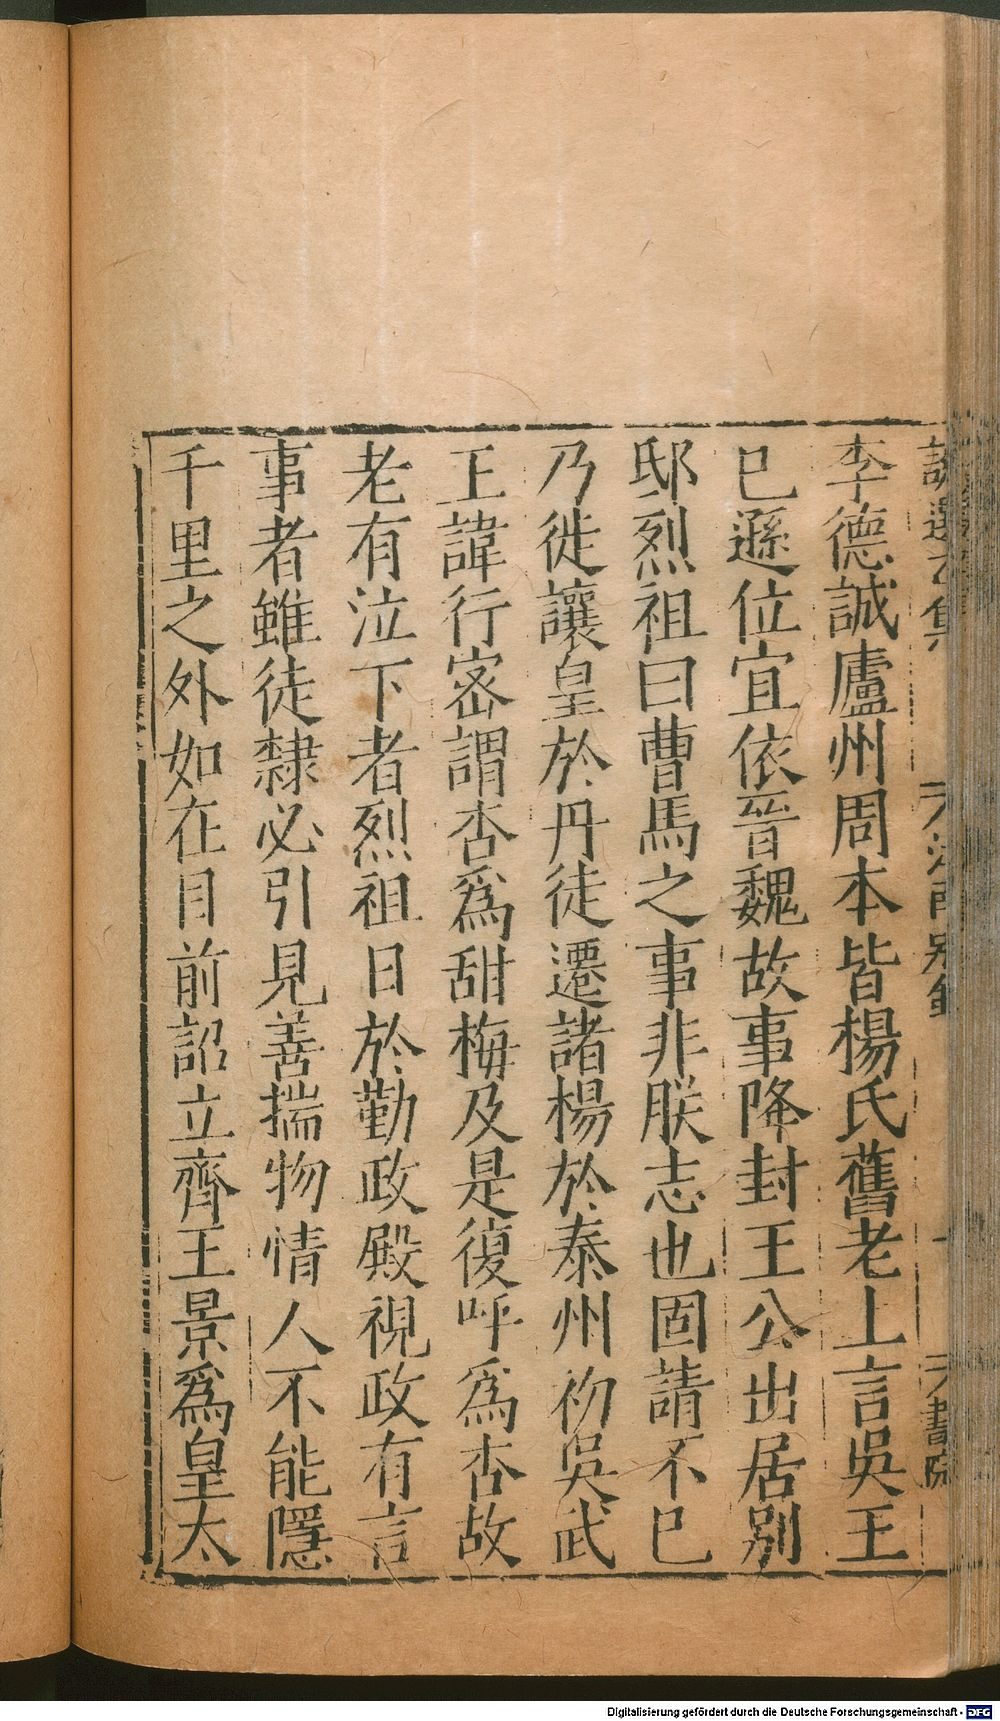 李德誠廬州周本皆楊氏舊老上言吳王
已遜位宜依晉魏故事降封王公出居別
邸烈祖曰曹馬之事非朕志也固請不已
乃徙讓皇於丹徒遷諸楊於泰州初吳武
王諱行密謂杏爲甜梅及是復呼爲杏故
老有泣下者烈祖日於勤政殿視政有言
事者雖徒隸必引見善揣物情人不能隱
千里之外如在目前詔立齊王景爲皇太
Digitalisierung gefördert durch die Deutsche Forschungsgemeinschaft - DFG